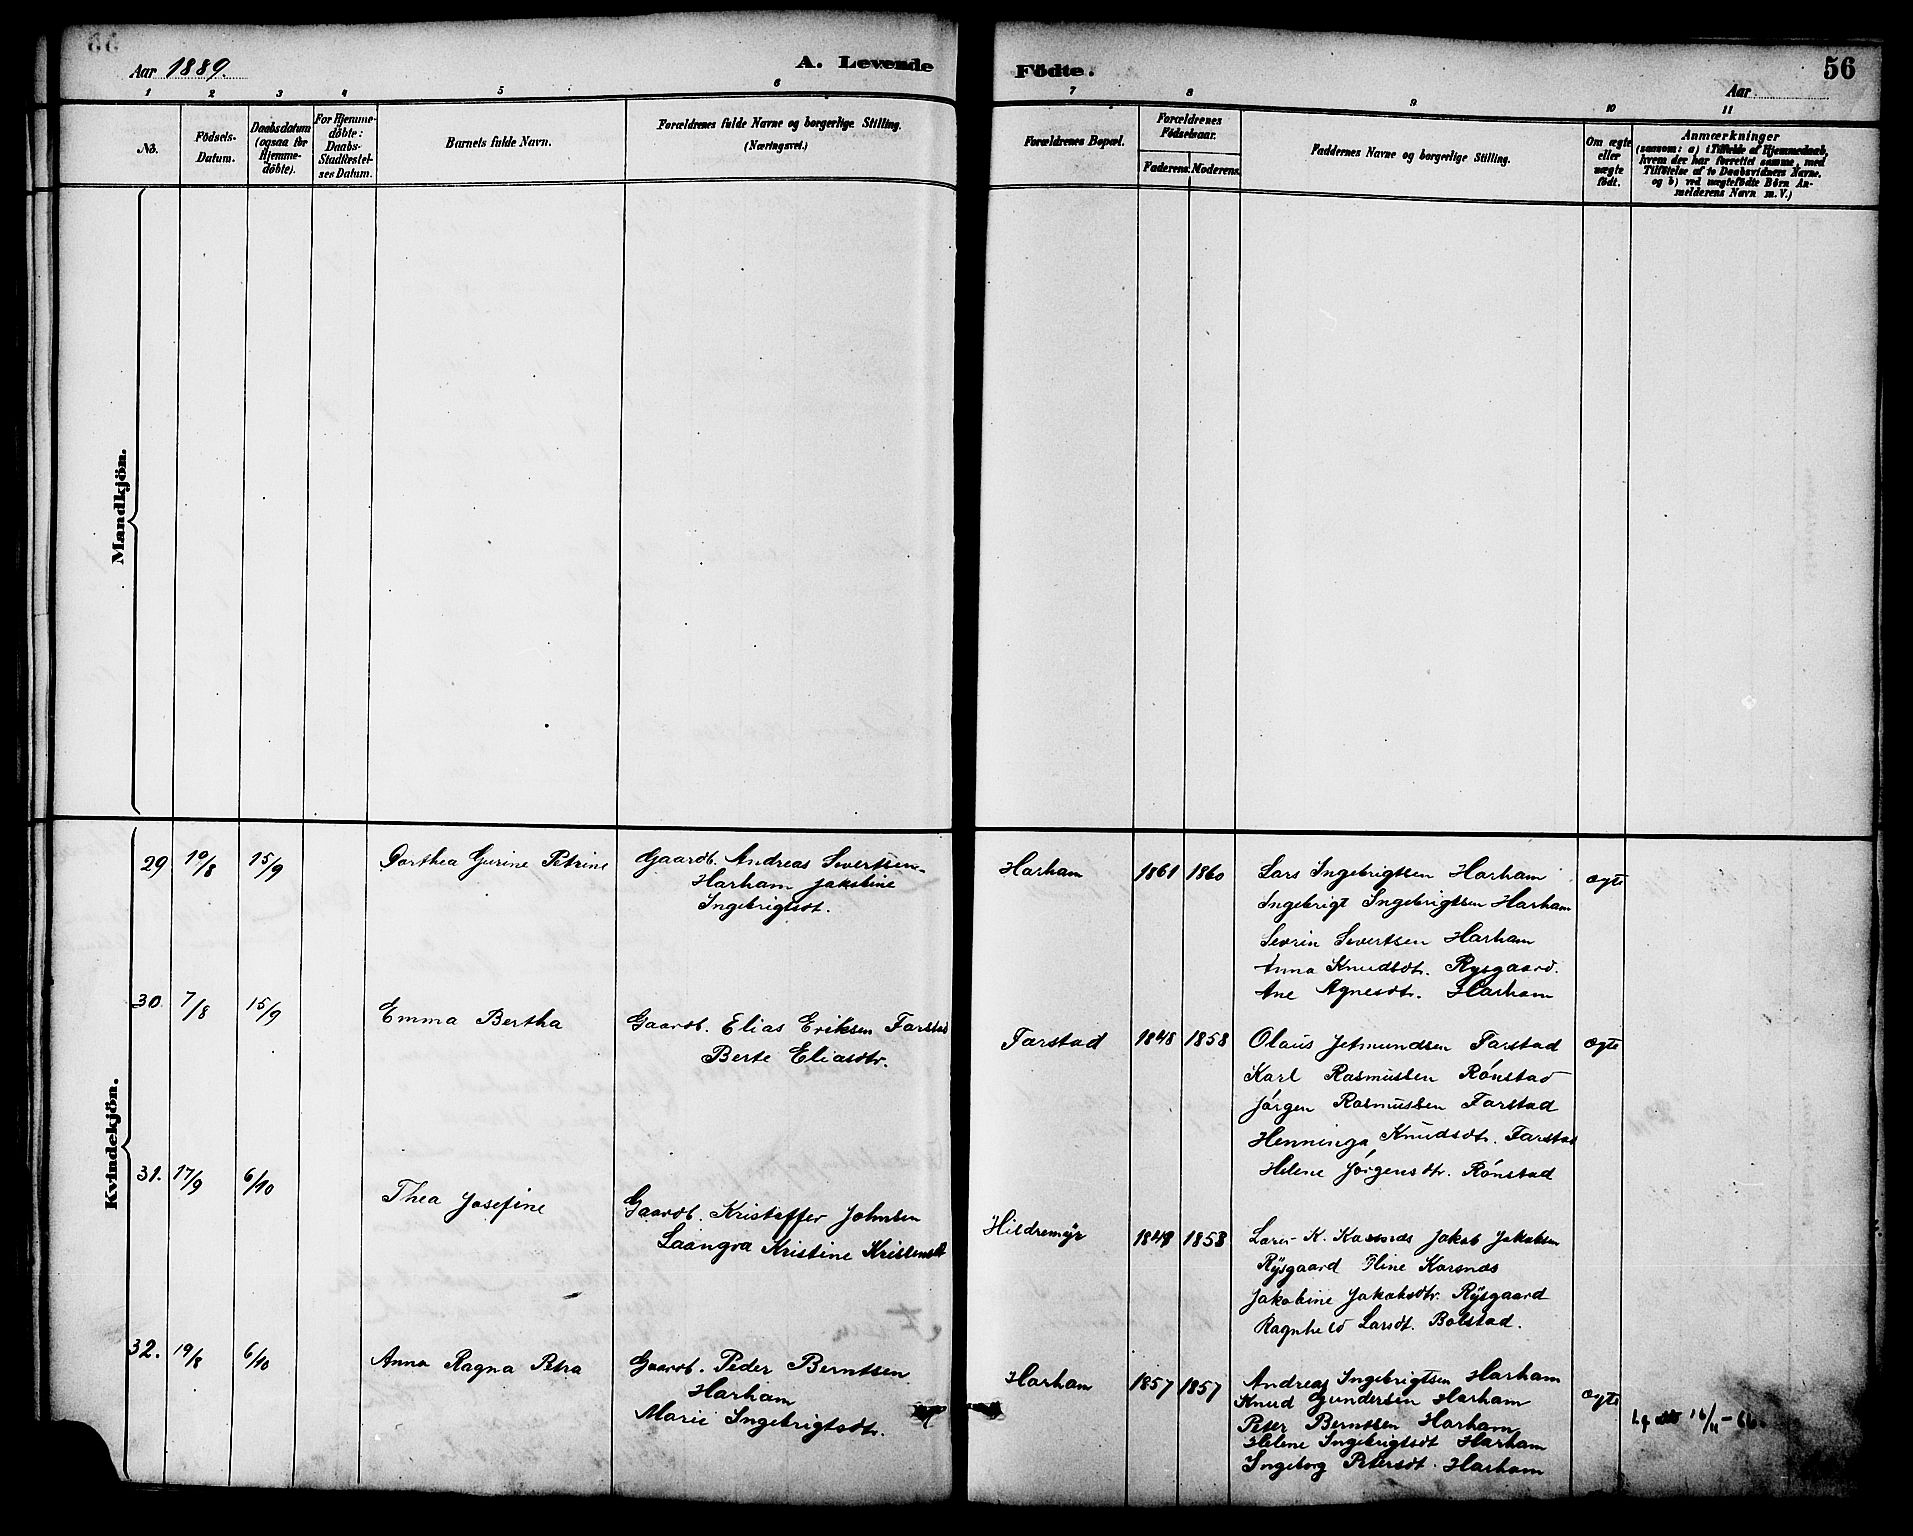 Aar 1889.
A. Levende
Födte.
56
Aar
1
2
3
4
5
6
7
8
9
10
11
No.
Födsels-
Datum.
Daabsdatum
(ogsaa for
Hjemme-
døbte).
For Hjemme-
døbte:
Daabs-
Stadfæstel-
ses Datum.
Barnets fulde Navn.
Forældrenes fulde Navne og borgerlige Stilling.
(Næringsvei.)
Forældrenes Bopæl.
Forældrenes
Födselsaar.
Faderens.
Moderens.
Faddernes Navne og borgerlige Stilling.
Om ægte
eller
uægte
født.
Anmærkninger
(saasom: a) i Tilfælde af Hjemmedaab,
hvem der har forrettet samme, med
Tilføielse af to Daabsvidners Navne.
og b) ved uægtefødte Børn An-
melderens Navn m.V.)
Mandkjön.
Kvindekjön.
29 19/8 15/9 Dorthea Gurine Petrine
Gaardb. Andreas Severtsen
Harham Jakobine
Ingebrigtsdt.
Harham 1861 1860
Lars Ingebrigtsen Harham
Ingebrigt Ingebrigtsen Harham
Sevrin Severtsen Harham
Anna Knudsdtr. Rysgaard.
Ane Agnesdtr. Harham
ægte
30 7/8 15/9 Emma Bertha
Gaardb. Elias Eriksen Farstad
Berte Eliasdtr.
Farstad 1848 1858
Olaus Jetmundsen Farstad
Karl Rasmussen Rönstad
Jörgen Rasmussen Farstad
Henninga Knudsdtr. Farstad
Helene Jörgensdtr. Rönstad
ægte
31. 17/9 6/10 Thea Josefine
Gaardb. Kristoffer Johnsen
Laangva Kristine Kristensdt
Hildremyr 1848 1858
Lars K. Karsnæs Jakob Jakobsen
Rysgaard Karsnæs
Jakobine Jakobsdtr. Rysgaard
Ragnhild Larsdt. Bolstad.
32. 19/8 6/10 Anna Ragna Petra
Gaardb. Peder Berntsen
Harham
Marie Ingebrigtsdtr.
Harham 1857 1857
Andreas Ingebrigtsen Harham
Knud Gundersen Harham
Peter Berntsen Harham
Helene Ingebrigtsdt Harham
Ingeborg Petersdt. Harham
ægte
16/11-66